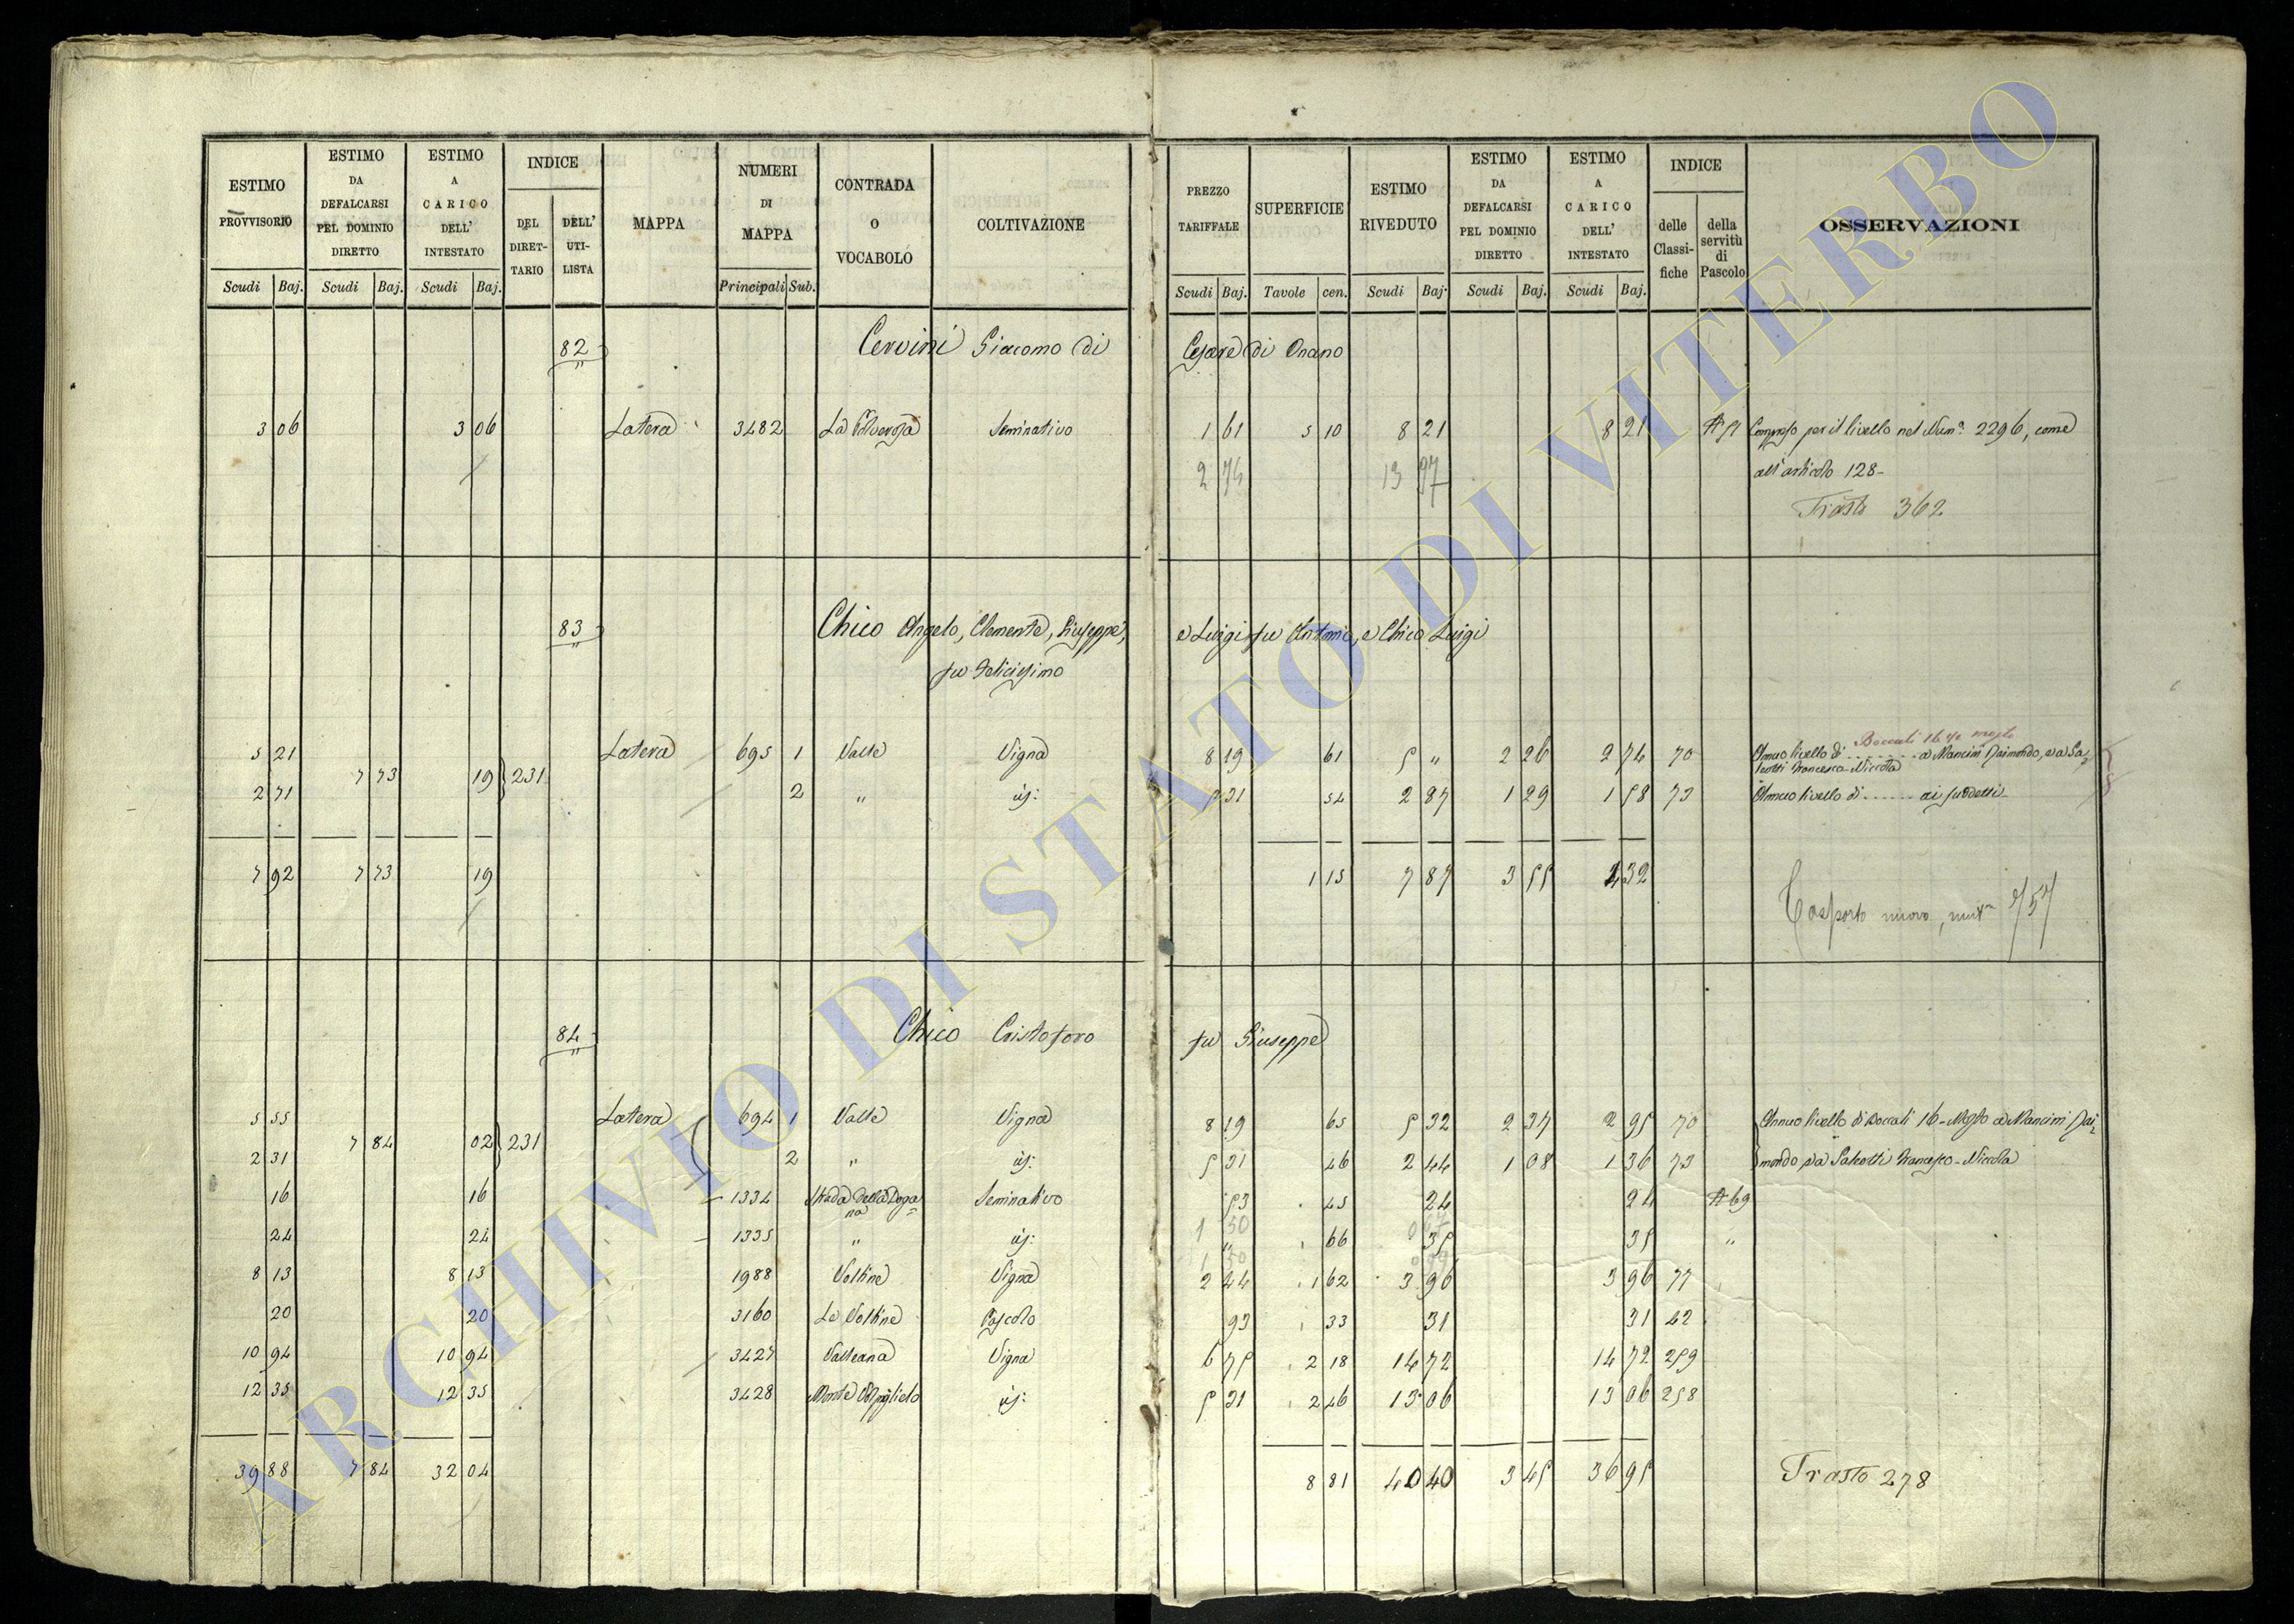 ESTIMO PROVVISORIO | ESTIMO DA DEFALCARSI PEL DOMINIO DIRETTO | ESTIMO A CARICO DELL' INTESTATO | INDICE | MAPPA | NUMERI DI MAPPA | CONTRADA O VOCABOLO | COLTIVAZIONE | PREZZO TARIFFALE | SUPERFICIE | ESTIMO RIVEDUTO | ESTIMO DA DEFALCARSI PEL DOMINIO DIRETTO | ESTIMO A CARICO DELL' INTESTATO | INDICE | OSSERVAZIONI
DEL DIRETTARIO | DELL' UTILISTA | delle Classifiche | della servitù di Pascolo
Scudi Baj. | Scudi Baj. | Scudi Baj. | Principali Sub. | Scudi Baj. | Tavole cen. | Scudi Baj. | Scudi Baj. | Scudi Baj.
82 Cervini Giacomo di Cesare di Onano
3 06 | 3 06 | Latera | 3482 | La Polverosa | Seminativo | 1 61 | 5 10 | 8 21 | 8 21 | Compreso per il livello nel Num.° 2296, come
2 74 | 13 97 | all'articolo 128-
Trasto 362
83 Chico Angelo, Clemente, Giuseppe, e Luigi fu Antonio, e Chico Luigi
fu Felicissimo
Boccali 16
5 21 | Latera | 695 1 | Valle | Vigna | 8 19 | 61 | 5 " | 2 26 | 2 74 | 70 | Annuo livello di ........ a Mancini Raimondo, e a
7 73 | 19 | 231 | Francesco-Niccola
2 71 | 2 | " | id: | 5 31 | 54 | 2 87 | 1 29 | 1 58 | 73 | Annuo livello di ...... ai suddetti-
7 92 | 7 73 | 19 | 1 15 | 7 87 | 3 55 | 4 32
757
84 Chico Cristoforo fu Giuseppe
5 55 | Latera | 694 1 | Valle | Vigna | 8 19 | 65 | 5 32 | 2 37 | 2 95 | 70 | Annuo livello di Boccali 16-Mosto a Mancini Rai=
7 84 | 02 | 231
2 31 | 2 | " | id: | 5 31 | 46 | 2 44 | 1 08 | 1 36 | 73 | mondo e a Francesco-Niccola
16 | 16 | 1334 | Strada della Dogana | Seminativo | 53 | 45 | 24 | 24 | A 69
1 50
24 | 24 | 1335 | " | id: | " | 66 | 35 | 35 | "
1 50
8 13 | 8 13 | 1988 | Voltine | Vigna | 2 44 | 1 62 | 3 96 | 3 96 | 77
20 | 20 | 3160 | Le Voltine | Pascolo | 93 | 33 | 31 | 31 | 42
10 94 | 10 94 | 3427 | Valleana | Vigna | 6 75 | 2 18 | 14 72 | 14 72 | 259
12 35 | 12 35 | 3428 | Monte | id: | 5 31 | 2 46 | 13 06 | 13 06 | 258
39 88 | 7 84 | 32 04 | 8 81 | 40 40 | 3 45 | 36 95 | Trasto 278
ARCHIVIO DI STATO DI VITERBO